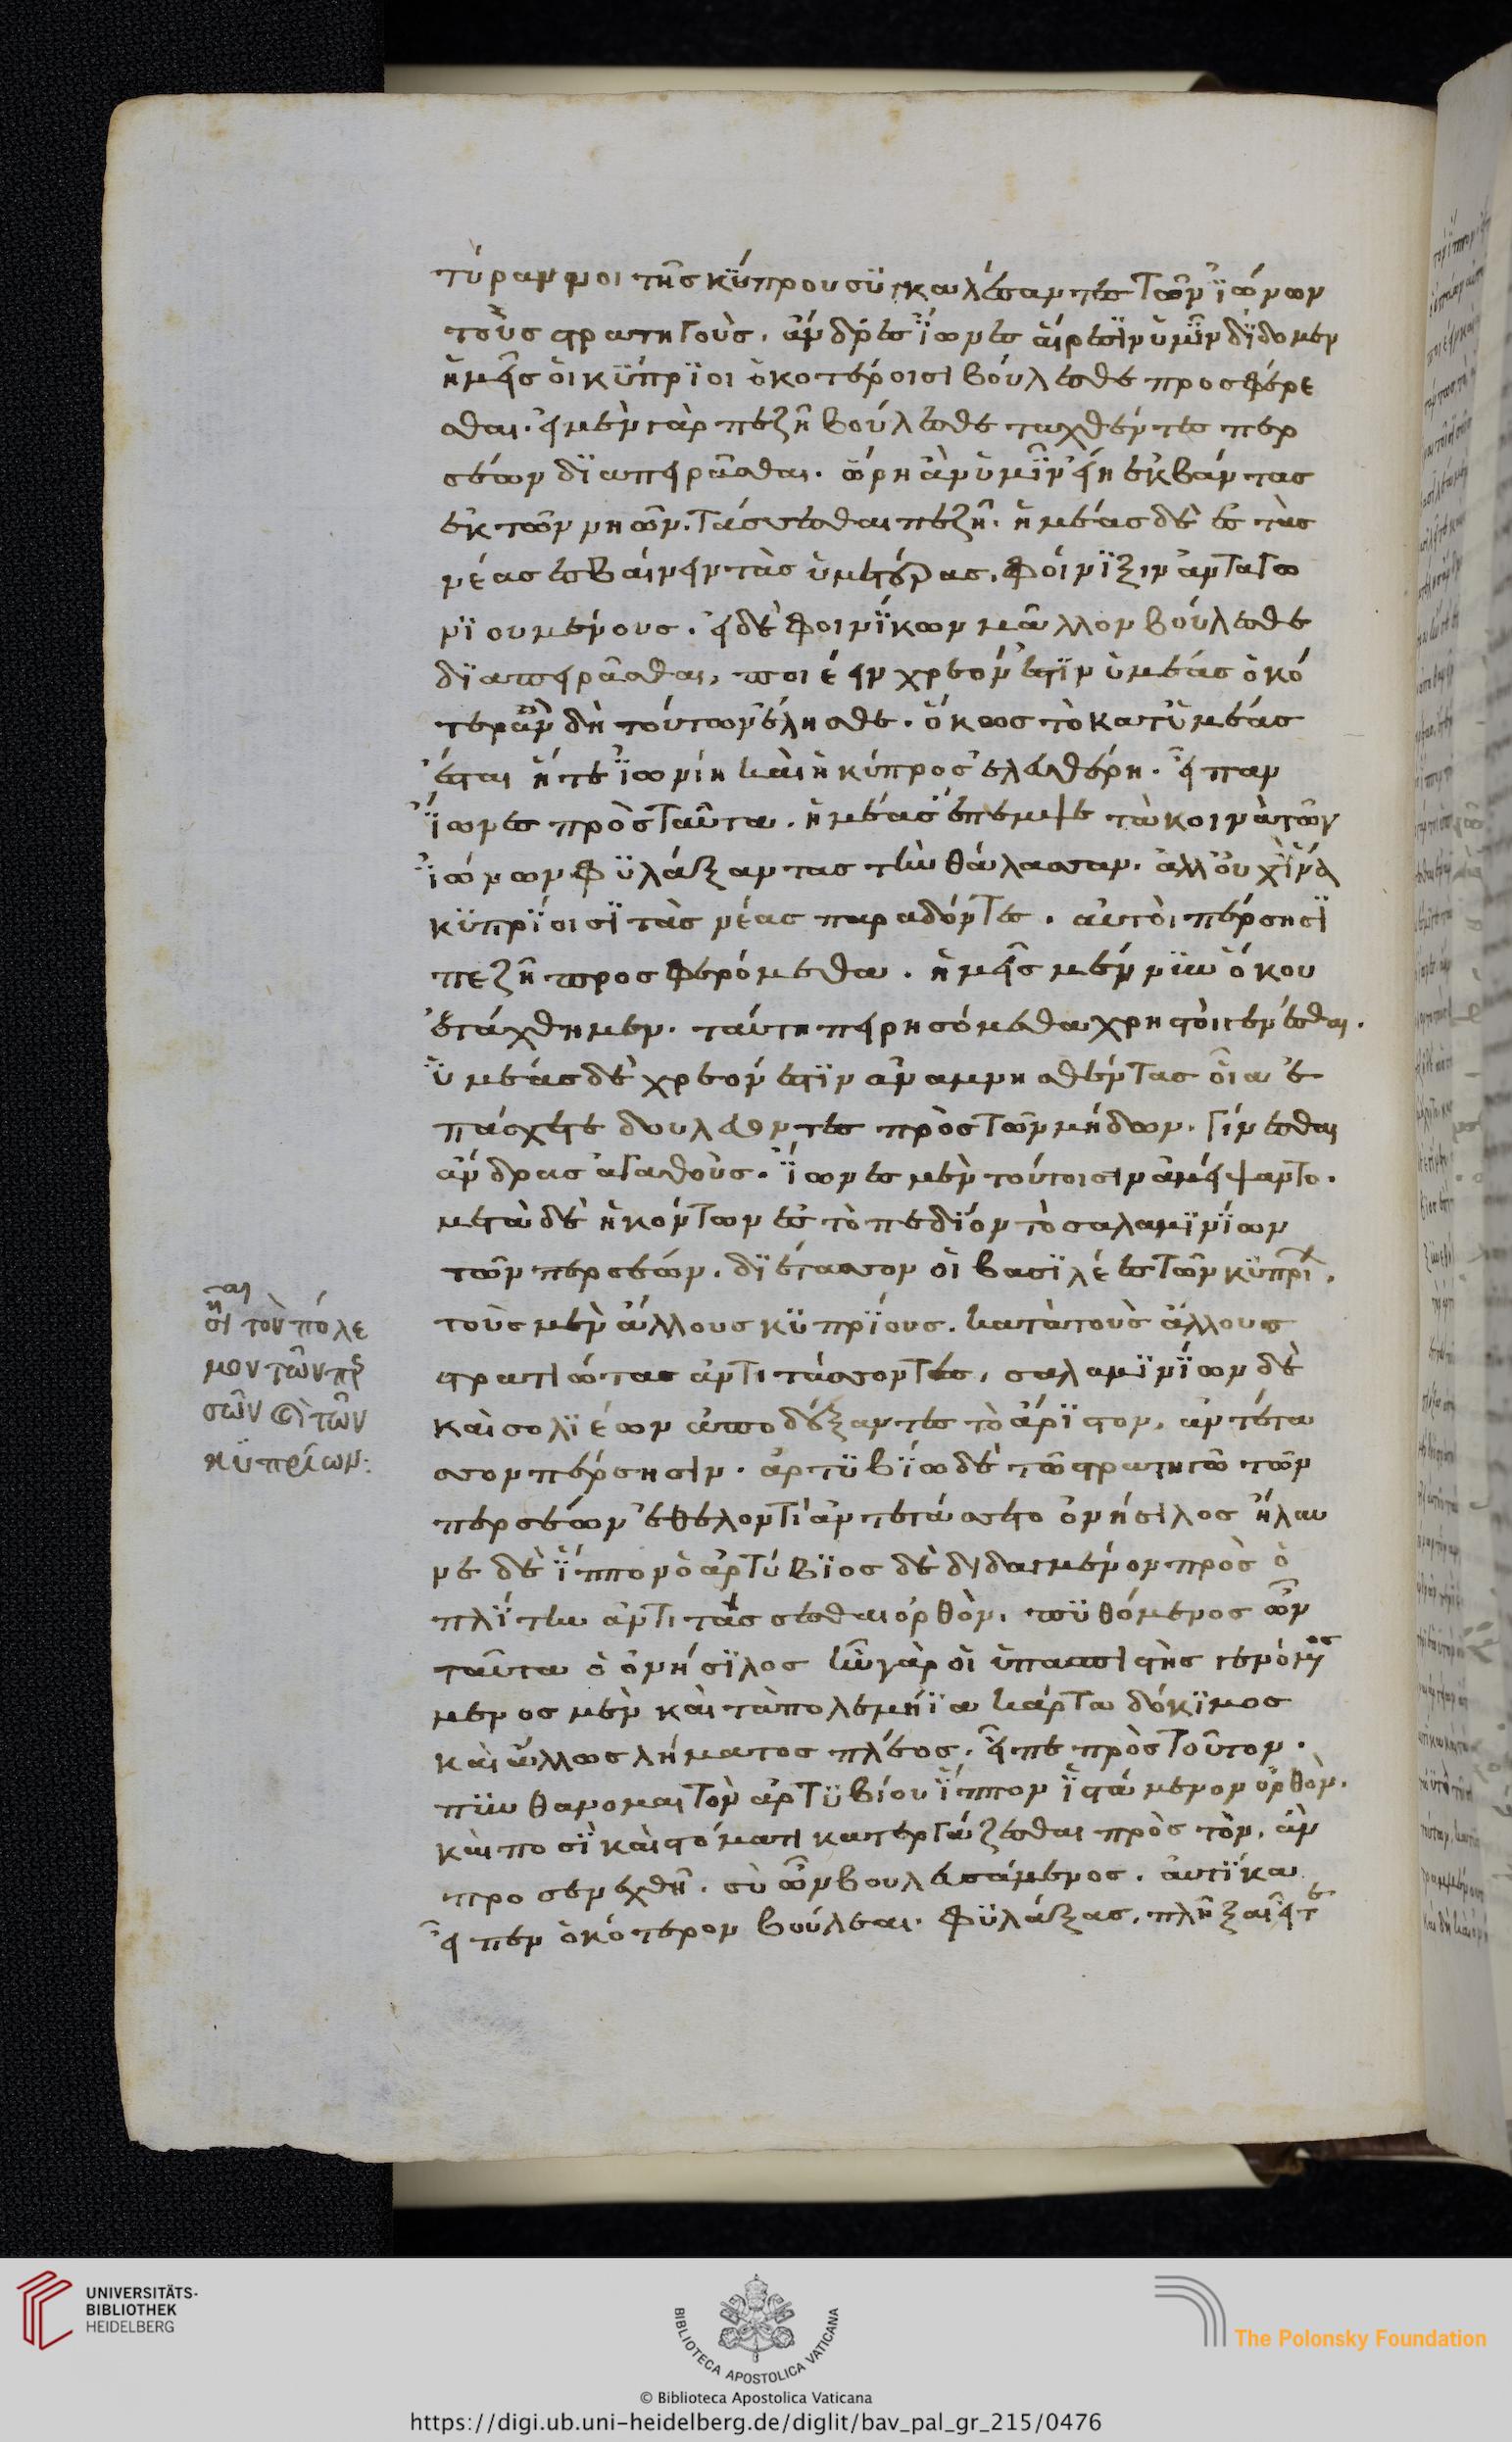 τύραννοι τῆς κύπρου συγκαλέσαντες τῶν ἰώνων
τοὺς στρατηγοὺς. ἄνδρες ἴωνες αἵρεσιν ὑμῖν δίδομεν
ἡμεῖς οἱ κύπριοι ὁκοτέροισι βούλεσθε προσφέρε
σθαι. εἰ μὲν γὰρ πεζῆ βούλεσθε ταχθέντες περ
σέων διαπειρᾶσθαι. ὥρη ἂν ὑμῖν εἴη ἐκβάντας
ἐκ τῶν νηῶν. τάσσεσθαι πεζῆ. ἡμέας δὲ ἐς τὰς
νέας ἐσβαίνειν τὰς ὑμετέρας. φοίνιξιν ἀνταγω
νιουμένους. εἰ δὲ φοινίκων μᾶλλον βούλεσθε
διαπειρᾶσθαι, ποιέειν χρεόν ἐστιν ὑμέας ὁκό
τερα ἂν δὴ τούτων ἕλησθε. ὅκως τὸ κατ' ὑμέας
ἔσται ἥ τε ἰωνίη καὶ ἡ κύπρος ἐλευθέρη. εἶπαν
ἴωνες πρὸς ταῦτα. ἡμέας ἔπεμψε τὸ κοινὸν τῶν
ἰώνων φυλάξαντας τὴν θάλασσαν. ἀλλ' οὐχ ἵνα
κυπρίοισι τὰς νέας παραδόντες. αὐτοὶ πέρσησι
πεζῆ προσφερόμεθα. ἡμεῖς μέν νυν ὅκου
ἐτάχθημεν. ταύτη πειρησόμεθα χρηστοὶ γενέσθαι.
ὑμέας δὲ χρεόν ἐστιν ἀναμνησθέντας οἷα ἐ
πάσχετε δουλεύοντες πρὸς τῶν μήδων. γίνεσθαι
ἄνδρας ἀγαθούς. ἴωνες μὲν τούτοισιν ἀμείψαντο.
μετὰ δὲ ἡκόντων ἐς τὸ πεδίον τὸ σαλαμινίων
τῶν περσέων. διέτασσον οἱ βασιλέες τῶν κυπρί.
τοὺς μὲν ἄλλους κυπρίους. κατὰ τοὺς ἄλλους
στρατιώτας ἀντιτάσσοντες, σαλαμινίων δὲ
καὶ σολιέων ἀποδέξαντες τὸ ἄριστον, ἀντέτα
σσον πέρσησιν. ἀρτυβίω δὲ τῶ στρατηγῶ τῶν
περσέων ἐθελοντὶ ἀντετάσσετο ὀνήσιλος ἤλαυ
νε δὲ ἵππον ὁ ἀρτύβιος δεδιδαγμένον πρὸς ὁ
πλίτην ἀντιτάσσεσθαι ὀρθὸν. πυθόμενος ὦν
ταῦτα ὁ ὀνήσιλος ἦν γάρ οἱ ὑπασπιστὴς γένος
μενος μὲν καὶ τὰ πολεμήϊα κάρτα δόκιμος
καὶ ἄλλως λήματος πλέος. εἶπε πρὸς τοῦτον.
πυνθάνομαι τὸν ἀρτυβίου ἵππον ἱστάμενον ὀρθὸν.
καὶ ποσὶ καὶ στόματι κατεργάζεσθαι πρὸς τὸν, ἂν
προσενεχθῆ. σὺ ὦν βουλευσάμενος. αὐτίκα
εἶπεν ὁκότερον βούλεαι. φυλάξας, πλῆξαι εἴτε
ση τὸν πόλε
μον τῶν περ
σῶν καὶ τῶν
κυπρίων:
UNIVERSITÄTS-
BIBLIOTHEK
HEIDELBERG
BIBLIOTECA APOSTOLICA VATICANA
The Polonsky Foundation
© Biblioteca Apostolica Vaticana
https://digi.ub.uni-heidelberg.de/diglit/bav_pal_gr_215/0476